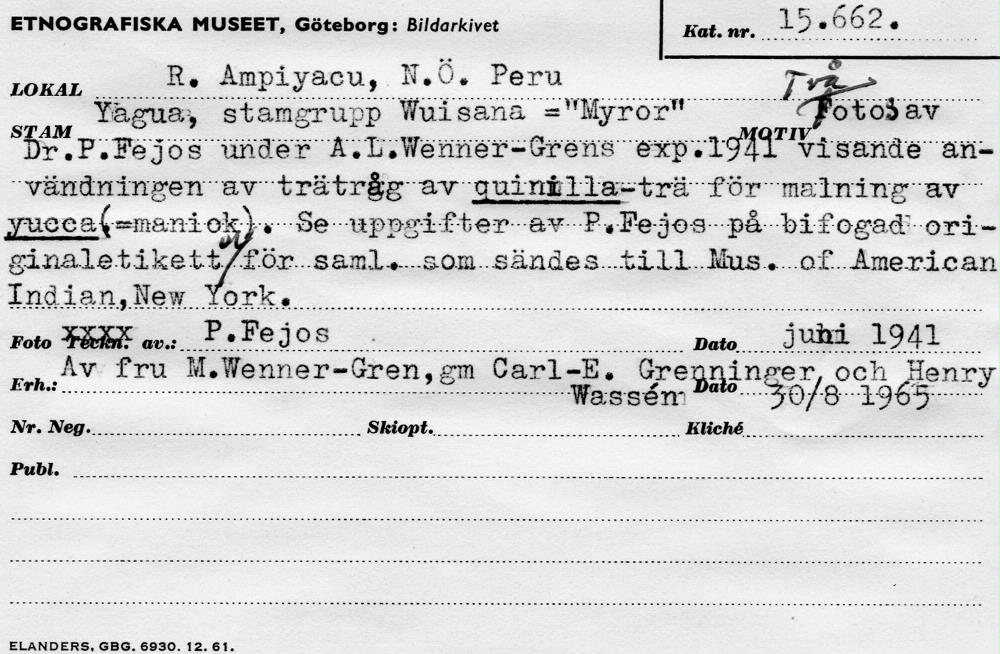 ETNOGRAFISKA MUSEET, Göteborg: Bildarkivet
Kat. nr. 15.662.
LOKAL R. Ampiyacu, N.Ö. Peru
Två
STAM Yagua, stamgrupp Wuisana ="Myror" MOTIV Fotos av
Dr.P.Fejos under A.L.Wenner-Grens exp.1941 visande an-
vändningen av trätråg av quinilla-trä för malning av
yucca(=maniok). Se uppgifter av P.Fejos på bifogad ori-
ginaletikett för saml. som sändes till Mus. of American
Indian,New York.
Foto xxxx Teckn. av.: P.Fejos Dato juni 1941
Erh.: Av fru M.Wenner-Gren,gm Carl-E. Grenninger och Henry
Wassén Dato 30/8 1965
Nr. Neg. Skiopt. Kliché
Publ.
ELANDERS, GBG. 6930. 12. 61.